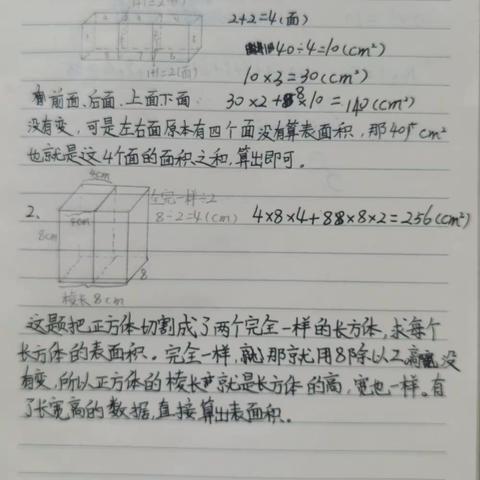 1+1=2(面)
2+2=4(面)
40÷4=10(cm²)
1+1=2(面)
10×3=30(cm²)
前面、后面、上面下面
30×2+8×10=140(cm²)
没有变，可是左右面原本有四个面没有算表面积，那40个cm²
也就是这4个面的面积之和，算出即可。
4cm
2.
全完一样÷2
8÷2=4(cm)
4×8×4+8×8×2=256(cm²)
4cm
8cm
8
棱长8cm
这题把正方体切割成了两个完全一样的长方体，求每个
长方体的表面积。完全一样，那就用8除以2。高没
有变，所以正方体的棱长就是长方体的高，宽也一样。有
了长宽高的数据，直接算出表面积。